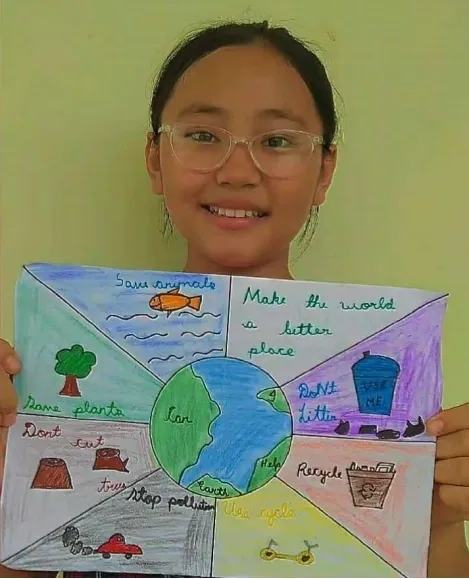 Save animals
Make the world
a better
place
Save plants
DoNt
Litter
USE
ME
I
Can
Help
Earth
Dont cut
trees
Recycle
Stop pollution
Use cycle